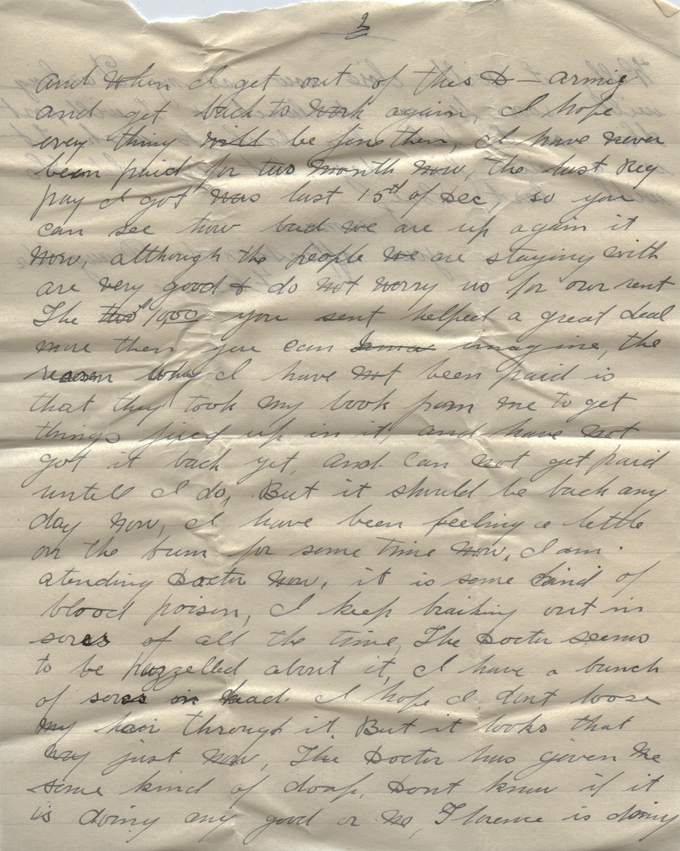 2
and when I get out of this D-armie
and get back to work again, I hope
evry thing will be fine then, I have never
been paid for two month now, the last Reg
pay I got was last 15th of Dec, so you
can see how bad we are up again it
now, although the people we are staying with
are very good & do not worry us for our rent
The 10.00 you sent helped a great deal
more then you can imagine, the
reason why I have not been paid is
that they took my book from me to get
things fixed up in it, and have not
got it back yet, and can not get paid
untill I do, But it should be back any
day now, I have been feeling a little
on the bum for some time now, I am
atending Doctor now, it is some kind of
blood poison, I keep braiking out in
sores of all the time, The Doctor seems
to be puzzelled about it, I have a bunch
of sores on head. I hope I dont loose
my hair through it. But it looks that
way just now, The Doctor has given me
some kind of doap, Dont know if it
is doing any good or no, Florence is doing